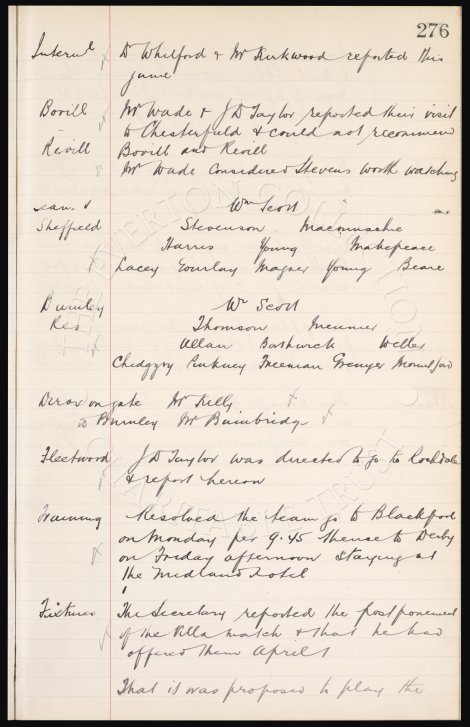 276
Dr Whitford & Mr Kirkwood reported this
game
Bovill Mr Wade & J D Taylor reported their visit
to Chesterfield & could not recommend
Revill Bovill and Revill
Mr Wade considered Stevens worth watching
Team v Wm Scott
Sheffield Stevenson Maconnachie
Harris Young Makepeace
Lacey Gourlay Magner Young Beare
Burnley Wm Scott
Res Thomson Meunier
Allan Borthwick Weller
Chedgzoy Pinkney Freeman Grenyer Mountford
Director on gate Mr Kelly
to Burnley Mr Bainbridge
Fleetwood J D Taylor was directed to go to Rochdale
& report hereon
Training Resolved the team go to Blackpool
on Monday per 9.45 thence to Derby
on Friday afternoon staying at
the Midland Hotel
Fixtures The Secretary reported the postponement
of the Villa match & that he had
offered them April 1
That it was proposed to play the
THE EVERTON COLLECTION
CHARITABLE TRUST